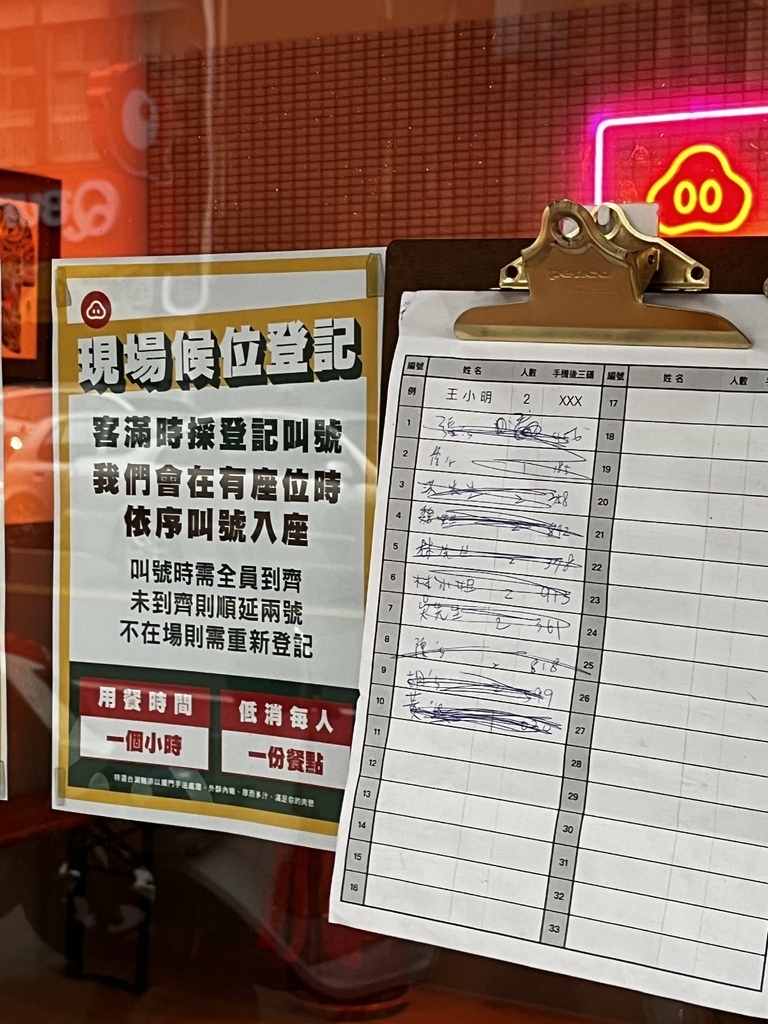 現場候位登記
客滿時採登記叫號
我們會在有座位時
依序叫號入座
叫號時需全員到齊
未到齊則順延兩號
不在場則需重新登記
用餐時間
一個小時
低消每人
一份餐點
penco
編號 姓名 人數 手機後三碼 編號 姓名 人數
例 王小明 2 XXX 17
1 18
2 19
3 2 20
4 2 21
5 2 398 22
6 林小姐 2 915 23
7 吳先生 2 361 24
8 818 25
9 26
10 黃 27
11 28
12 29
13 30
14 31
15 32
16 33